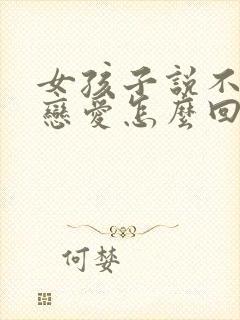 女孩子說不
戀愛怎麼回
何婪